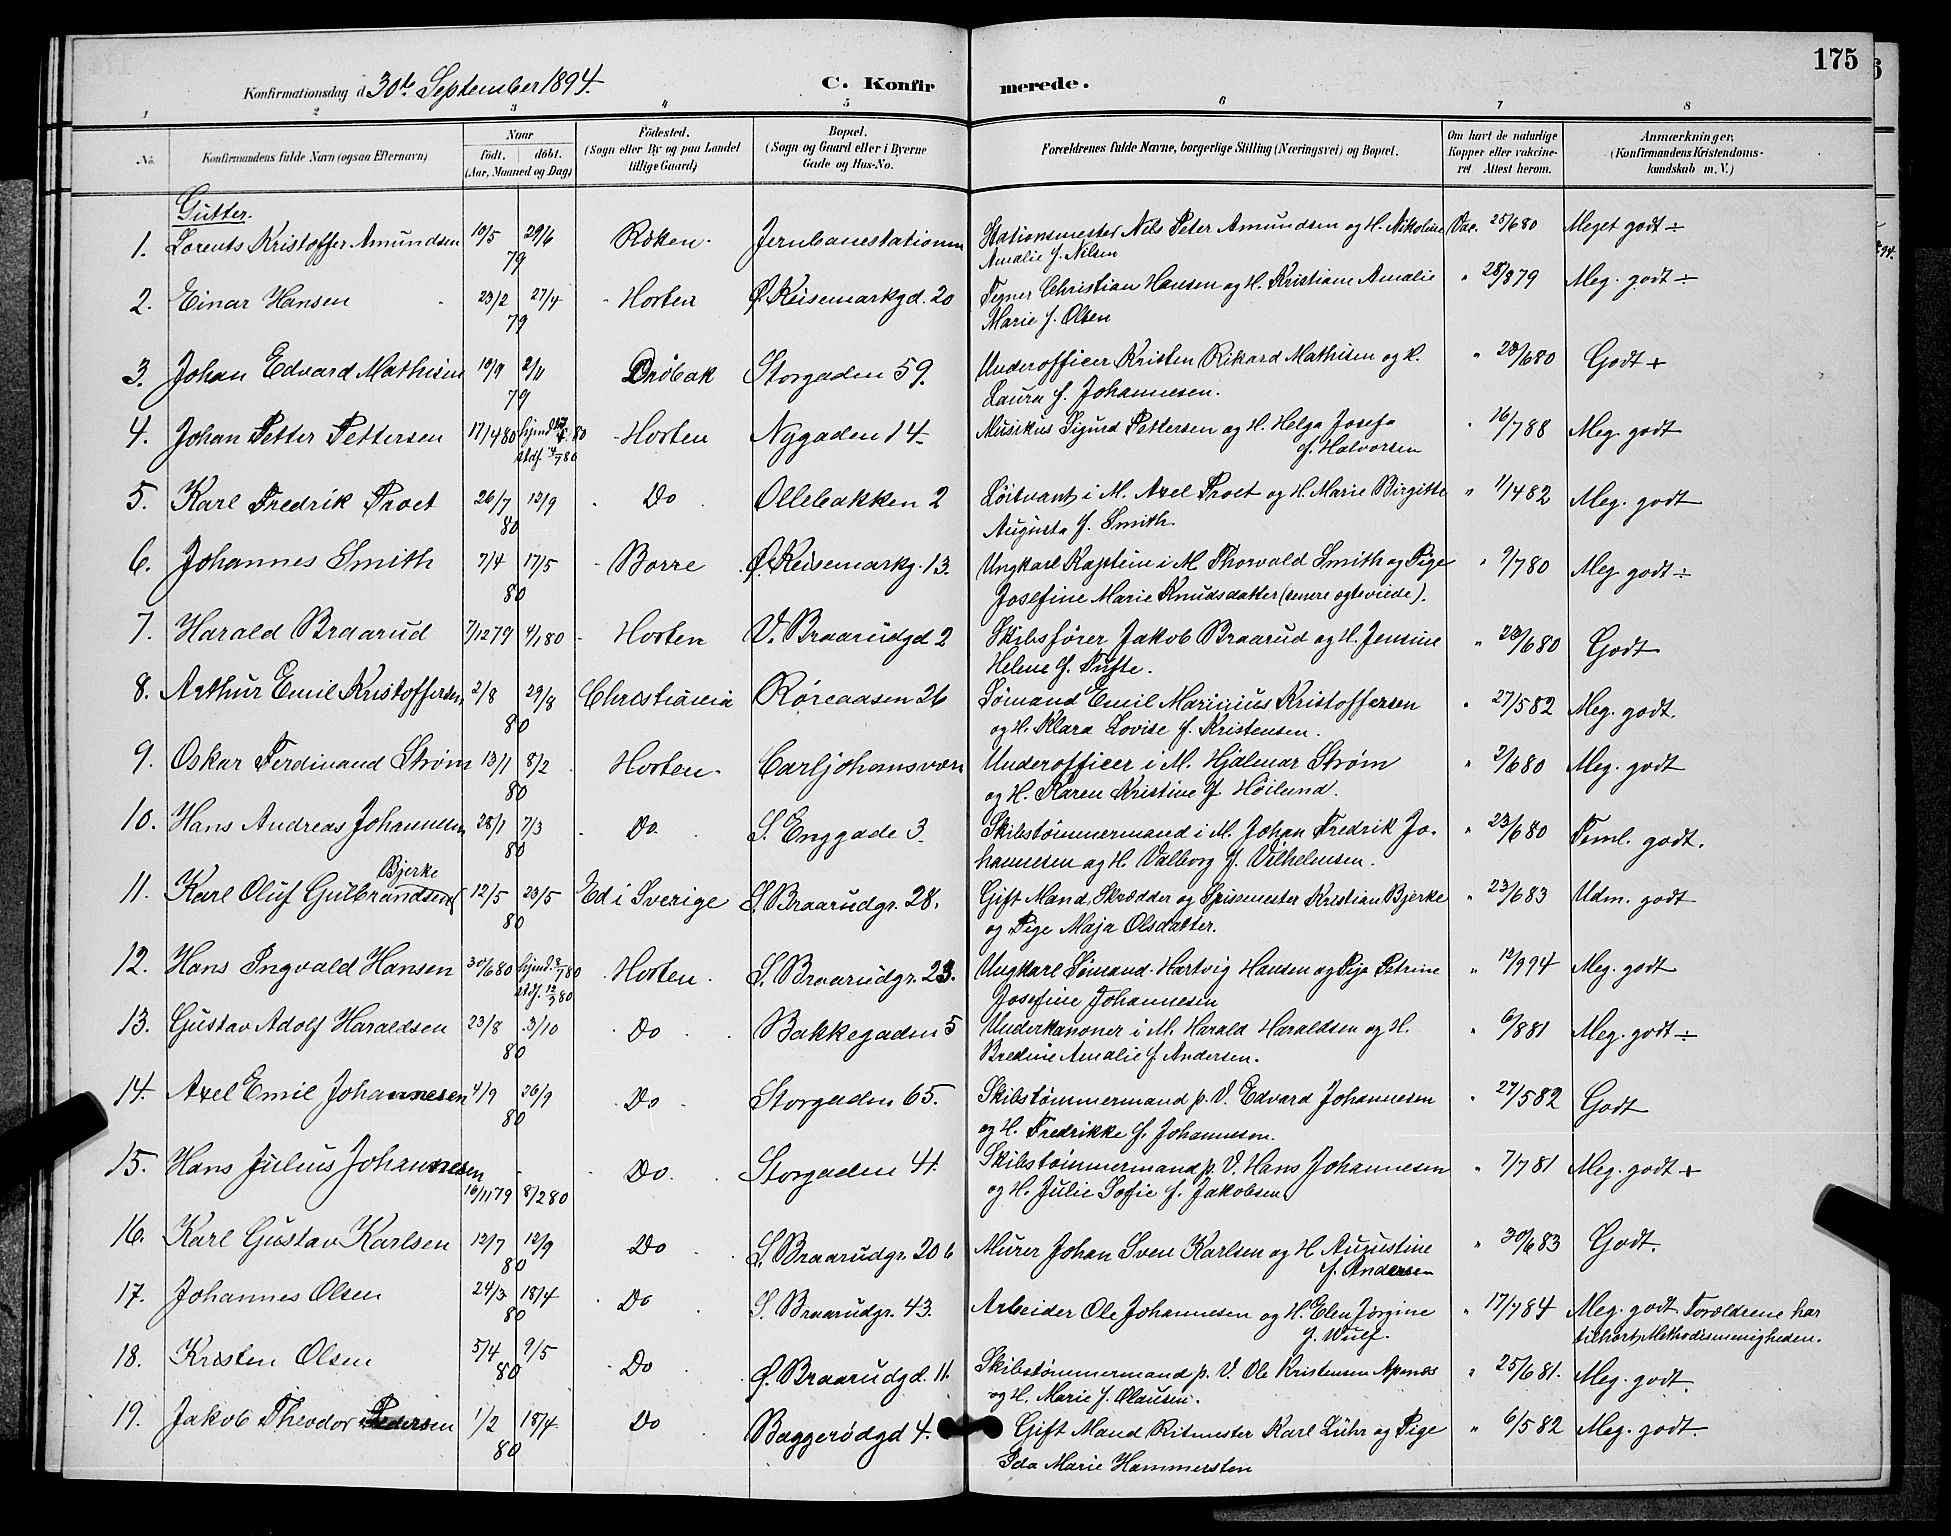 175
Konfirmationsdag d. 30te September 1894.
C. Konfirmerede.
1 2 3 4 5 6 7 8
No. Konfirmandens fulde Navn (ogsaa Efternavn) Naar født. døbt. (Aar, Maaned og Dag) Fødested. (Sogn eller By og paa Landet tillige Gaard) Bopæl. (Sogn og Gaard eller i Byerne Gade og Hus-No. Forældrenes fulde Navne, borgerlige Stilling (Næringsvei) og Bopæl. Om havt de naturlige Kopper eller vakcineret Attest herom. Anmærkninger. (Konfirmandens Kristendomskundskab m. V.)
Gutter.
1. Lorents Kristoffer Amundsen 10/5 29/6 79 Røken. Jernbanestationen Stationsmester Nils Peter Amundsen og H. Nikoline Vac. 25/6 80 Meget godt ÷
Amalie f. Nilsen
2. Einar Hansen 23/2 27/4 79 Horten Ø. Keisemarkgd. 20 Tegner Christian Hansen og H. Kristiane Amalie " 28/8 79 Meg. godt ÷
Marie f. Olsen
3. Johan Edvard Mathisen 10/9 2/11 79 Drøbak Storgaden 59. Underofficer Kristen Rikard Mathisen og H. " 28/6 80 Godt +
Laura f. Johannesen.
4. Johan Petter Pettersen 17/4 80 hjmd. 80 Horten Nygaden 14. Musikus Sigurd Pettersen og H. Helga Josefa " 16/7 88 Meg. godt
stdf. 4/7 80 f. Halvorsen
5. Karl Fredrik Proet 26/7 12/9 80 Do Ollebakken 2 Løitnant i M. Axel Proet og H. Marie Birgitte " 11/4 82 Meg. godt
Augusta f. Smith.
6. Johannes Smith 7/4 17/5 80 Borre Ø. Keisemarkg. 13. Ungkarl Kaptein i M. Thorvald Smith og Pige " 9/7 80 Meg. godt ÷
Josefine Marie Knudsdatter (senere egteviede).
7. Harald Braarud 7/12 79 4/1 80 Horten V. Braarudgd 2 Skibsfører Jakob Braarud og H. Jensine " 23/6 80 Godt
Helene f. Tufte.
8. Arthur Emil Kristoffersen 2/8 29/8 80 Christiania Røreaasen 26 Sømand Emil Marinius Kristoffersen " 27/5 82 Meg. godt.
og H. Klara Lovise f. Kristensen.
9. Oskar Ferdinand Strøm 13/1 8/2 80 Horten. Carljohansværn Underofficer i M. Hjalmar Strøm " 2/6 80 Meg. godt
og H. Karen Kristine f. Höilund.
10. Hans Andreas Johannesen 28/1 7/3 80 Do. S. Enggade 3. Skibstømmermand i M. Johan Fredrik Jo- " 23/6 80 Teml. godt.
hannesen og H. Valborg f. Vilhelmsen.
Bjerke
11. Karl Oluf Gulbrandsen 12/5 23/5 80 Ed i Sverige S. Braarudgr. 28. Gift Mand Skrædder og Spisemester Kristian Bjerke " 23/6 83 Udm. godt
og Pige Maja Olsdatter.
12. Hans Ingvald Hansen 30/6 80 hjmd. 80 Horten. S. Braarudgr. 23. Ungkarl Sømand Hartvig Hansen og Pige Petrine " 12/9 94 Meg. godt
stdf. 80 Josefine Johannesen
13. Gustav Adolf Haraldsen 23/8 3/10 80 Do Bakkegaden 5 Underkanoner i M. Harald Haraldsen og H. " 6/8 81 Meg. godt ÷
Bredine Amalie f. Andersen.
14. Axel Emil Johannesen 4/9 26/9 80 Do Storgaden 65. Skibstømmermand p. V. Edvard Johannesen " 27/5 82 Godt
og H. Fredrikke f. Johannesen.
15. Hans Julius Johannesen 16/11 79 8/2 80 Do Storgaden 41. Skibstømmermand p. V. Hans Johannesen " 7/7 81 Meg. godt +
og H. Julie Sofie f. Jakobsen
16. Karl Gustav Karlsen 12/7 12/9 80 Do S. Braarudgr. 20 b Murer Johan Sven Karlsen og H Augustine " 30/6 83 Godt.
f. Andersen
17. Johannes Olsen 24/3 18/4 80 Do S. Braarudgr. 43. Arbeider Ole Johannesen og H. Elen Jørgine " 17/7 84 Meg. godt. Forældrene har
f. Wulf. tilhørt Methodismenigheden.
18. Kristen Olsen 5/4 9/5 80 Do Ø. Braarudgd. 11. Skibstømmermand p. V. Ole Kristensen Apenæs " 25/6 81. Meg. godt.
og H. Marie f. Olausen.
19. Jakob Theodor Pedersen 1/2 18/4 80 Do Baggerødgd 4. Gift Mand Ritmester Karl Lühr og Pige " 6/5 82 Meg. godt.
Ida Marie Hammersten